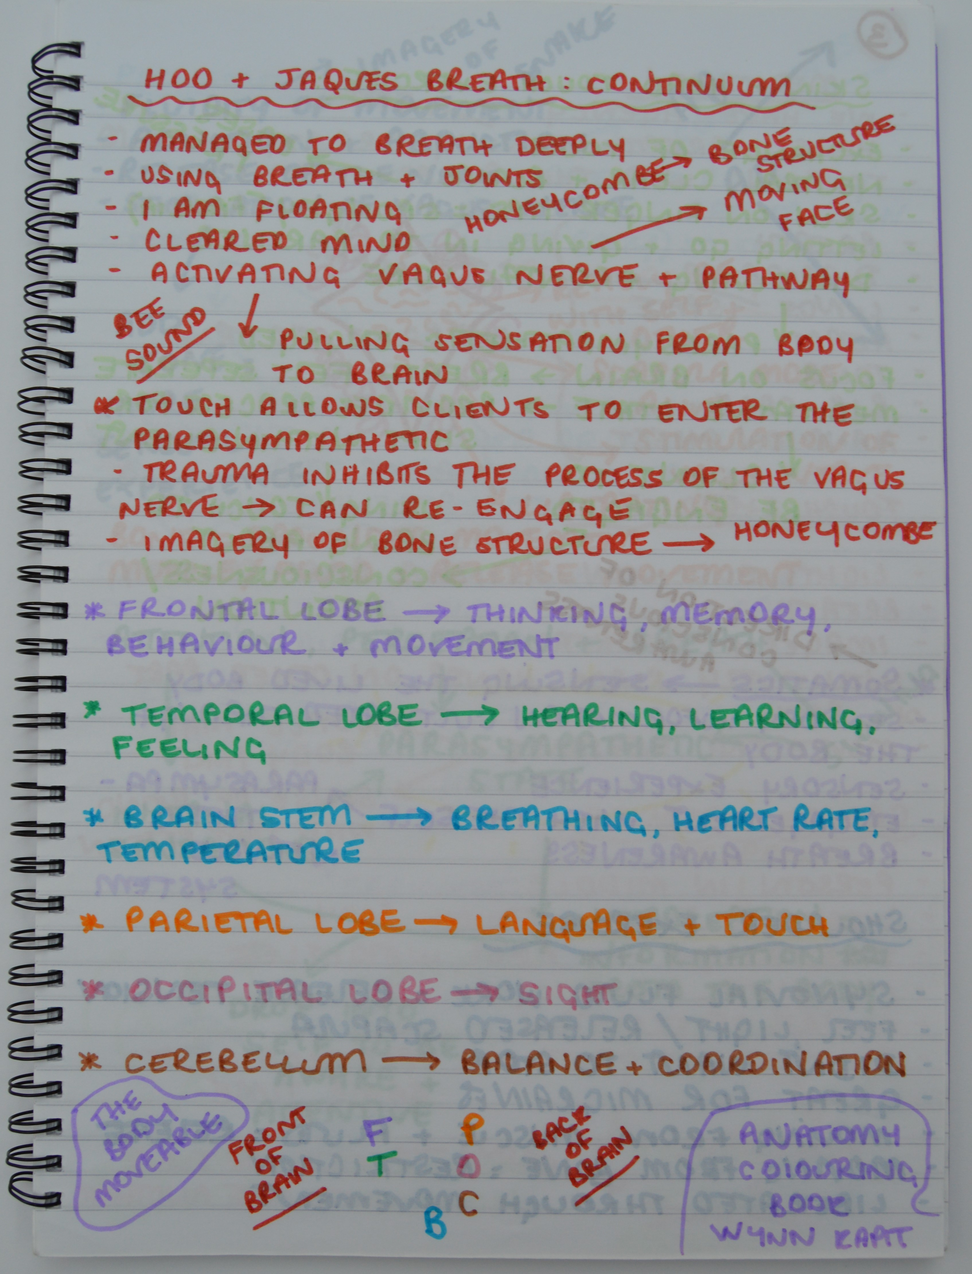 3
HOO + JAQUES BREATH : CONTINUUM
- MANAGED TO BREATH DEEPLY
- USING BREATH + JOINTS
HONEYCOMBE → BONE STRUCTURE
→ MOVING FACE
- I AM FLOATING
- CLEARED MIND
- ACTIVATING VAGUS NERVE + PATHWAY
BEE
SOUND
↓ PULLING SENSATION FROM BODY
TO BRAIN
* TOUCH ALLOWS CLIENTS TO ENTER THE
PARASYMPATHETIC
- TRAUMA INHIBITS THE PROCESS OF THE VAGUS
NERVE → CAN RE-ENGAGE
- IMAGERY OF BONE STRUCTURE → HONEYCOMBE
* FRONTAL LOBE → THINKING, MEMORY,
BEHAVIOUR + MOVEMENT
* TEMPORAL LOBE → HEARING, LEARNING,
FEELING
* BRAIN STEM → BREATHING, HEART RATE,
TEMPERATURE
* PARIETAL LOBE → LANGUAGE + TOUCH
* OCCIPITAL LOBE → SIGHT
* CEREBELLUM → BALANCE + COORDINATION
THE
BODY
MOVEABLE
FRONT
OF
BRAIN
F P
T O
C
B
BACK
OF
BRAIN
ANATOMY
COLOURING
BOOK
WYNN KAPIT